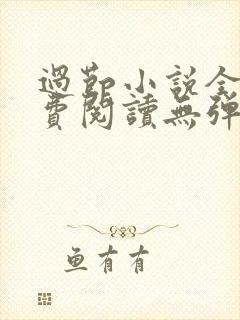 過節小說全
費閱讀無彈
鱼有有